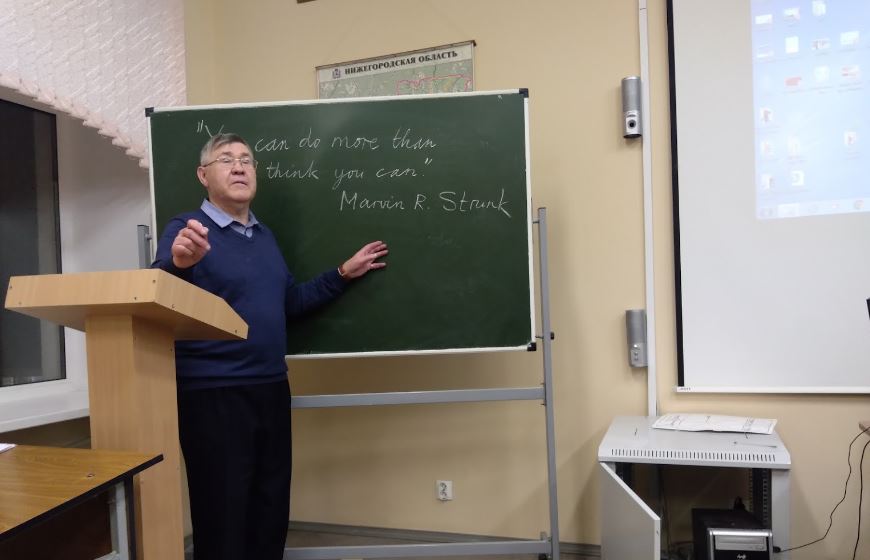 НИЖЕГОРОДСКАЯ ОБЛАСТЬ
can do more than
think you can."
Marvin R. Strunk